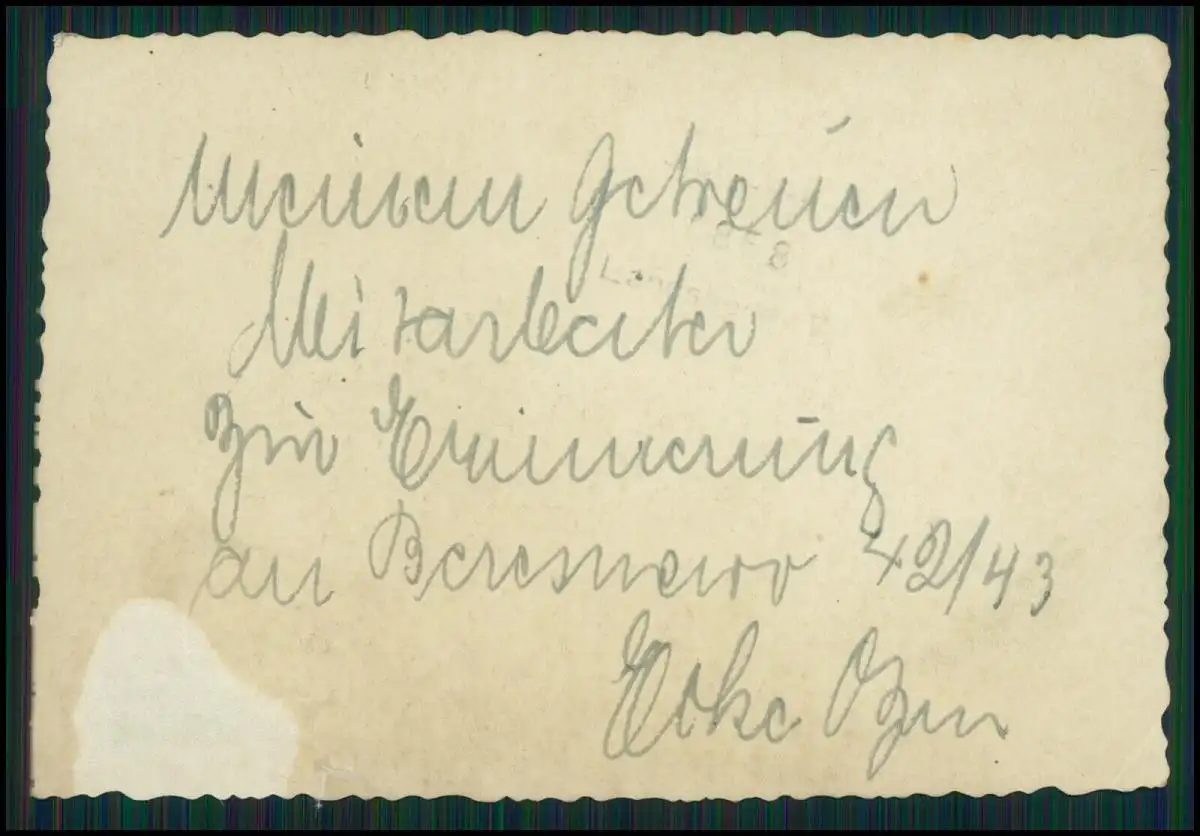 Meinem getreuen
Mitarbeiter
zur Erinnerung
an Beresnewo 42/43